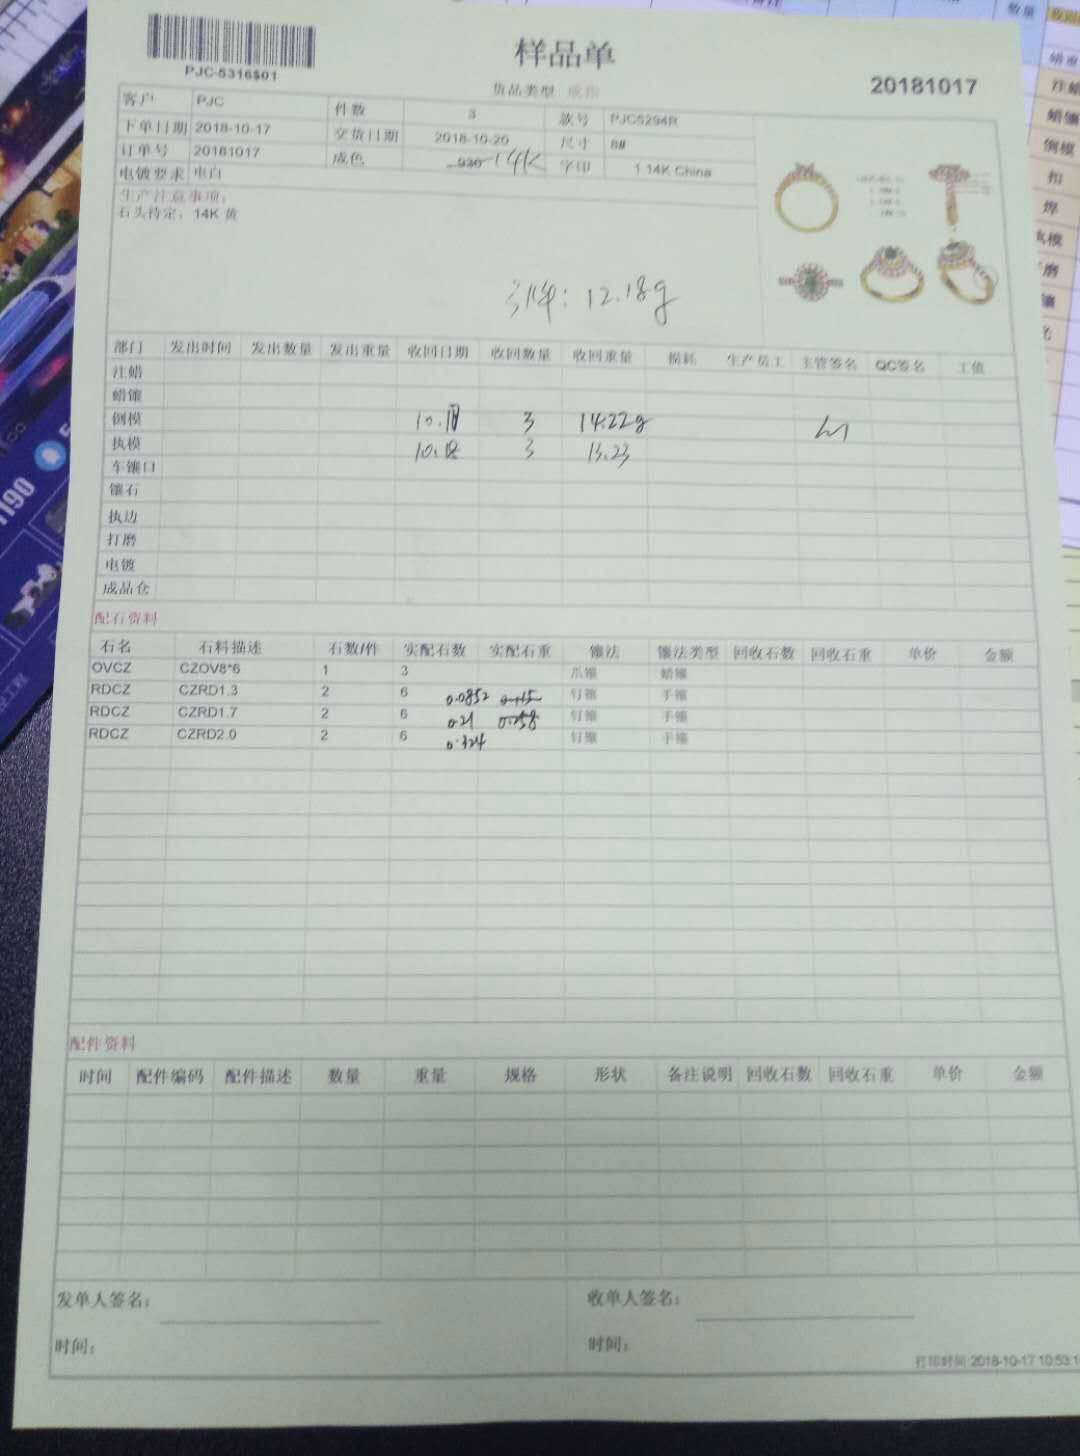 样品单
PJC-5316$01
货品类型
20181017
客户 PJC 件数 3 款号 PJC5294R
下单日期 2018-10-17 交货日期 2018-10-20 尺寸 8#
订单号 20181017 成色 930 14K 字印 1 14K China
电镀要求 电白
生产注意事项:
石头待定,14K 黄
12.18g
部门 发出时间 发出数量 发出重量 收回日期 收回数量 收回重量 损耗 生产员工 主管签名 QC签名 工值
注蜡
蜡镶
倒模 10.18 3 14.22g
执模 10.18 3 13.23
车镶口
镶石
执边
打磨
电镀
成品仓
配石资料
石名 石料描述 石数/件 实配石数 实配石重 镶法 镶法类型 回收石数 回收石重 单价 金额
OVCZ CZOV8*6 1 3 爪镶 蜡镶
RDCZ CZRD1.3 2 6 0.0852 0.115 钉镶 手镶
RDCZ CZRD1.7 2 6 0.21 0.258 钉镶 手镶
RDCZ CZRD2.0 2 6 0.324 钉镶 手镶
配件资料
时间 配件编码 配件描述 数量 重量 规格 形状 备注说明 回收石数 回收石重 单价 金额
发单人签名: 收单人签名:
时间: 时间:
打印时间:2018-10-17 10:53:1
数量
注蜡
蜡镶
倒模
扣
焊
执模
磨
镶
1190